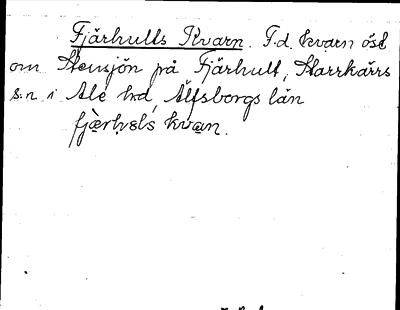 Fjärhults Kvarn. F.d. kvarn öst
om Stensjön på Fjärhult, Starrkärrs
s:n i Ale hd, Älfsborgs län
fjærhɵls kvan.